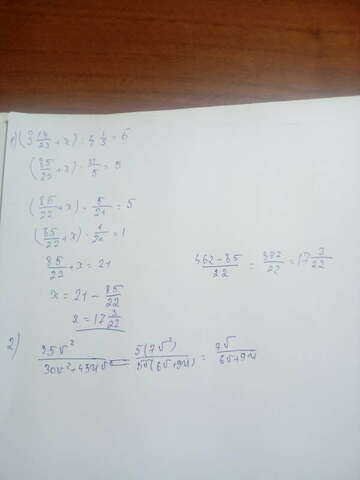 1) (3 19/22 + x) : 4 1/5 = 5
(85/22 + x) : 21/5 = 5
(85/22 + x) · 5/21 = 5
(85/22 + x) · 1/21 = 1
85/22 + x = 21
x = 21 - 85/22
x = 17 3/22
(462 - 85)/22 = 382/22 = 17 3/22
2)
35v²/(30v² + 45uv) = 5(7v²)/(5v(6v + 9u)) = 7v/(6v + 9u)